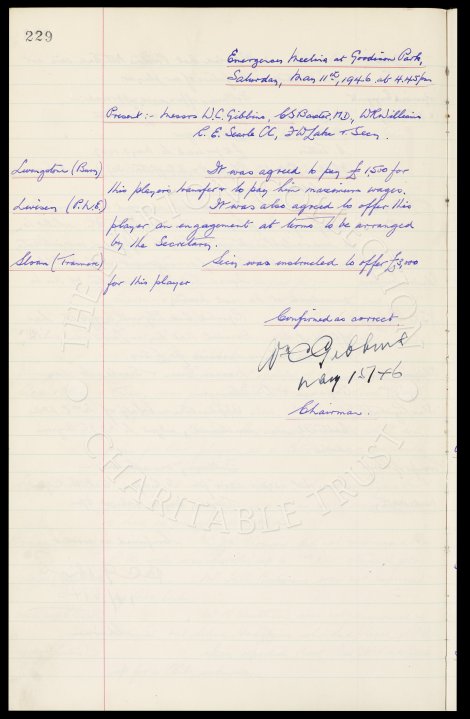 229
Emergency Meeting at Goodison Park,
Saturday, May 11th, 1946 at 4.45pm
Present :- Messrs W.C. Gibbins, C S Baxter, M.D., W R Williams
C. E. Searle &, F W Lake & Secy.
Livingstone (Bury) It was agreed to pay £1500 for
this players transfer & to pay him maximum wages.
(P.N.E) It was also agreed to offer this
player an engagement at terms to be arranged
by the Secretary.
Sloan (Tranmere) Secy was instructed to offer £3,000
for this player
Confirmed as correct
W C Gibbins
May 15/46
Chairman.
THE COLLECTION
CHARITABLE TRUST